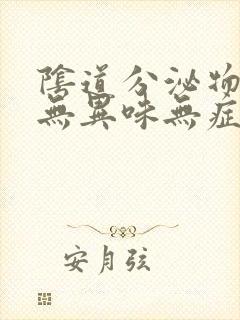 陰道分泌物
無異味無症
安月弦